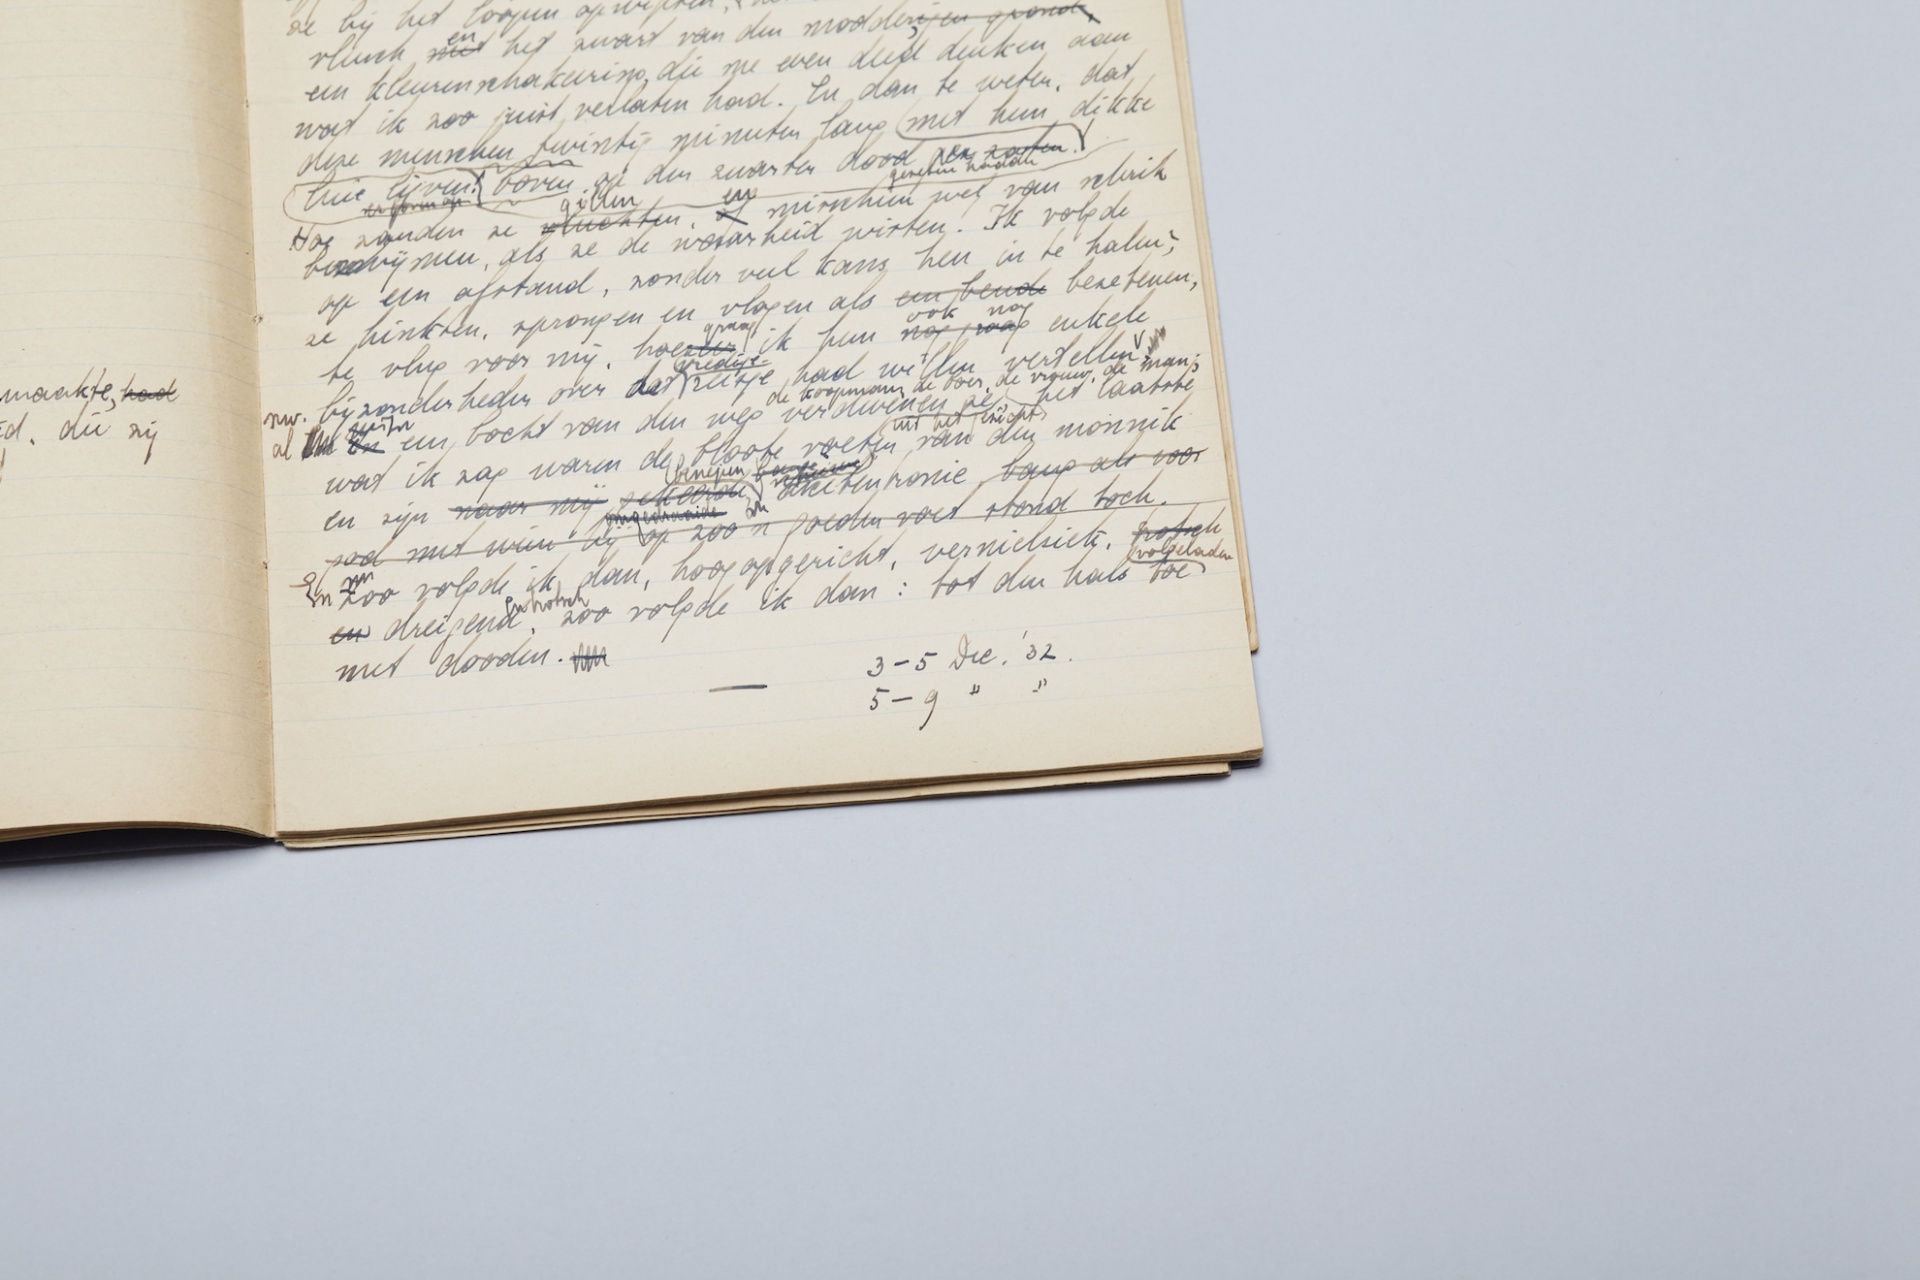 maakte, had
ed. die zij
ze bij het loopen opwipten,
vlucht met en het zwart van den modderigen grond,
een kleurenschakeering, die me even deed denken aan
wat ik zoo juist verlaten had. En dan te weten, dat
deze menschen twintig minuten lang (met hun dikke
luie lijven) boven op den zwarten dood gezeten hadden
Hoe zouden ze vluchten, gillen of en misschien wel van schrik
bezwijmen, als ze de waarheid wisten! Ik volgde
op een afstand, zonder veel kans hen in te halen;
ze hinkten, sprongen en vlogen als een bende bezetenen,
te vlug voor mij, hoe graag ik hun ook nog nog graag enkele
bijzonderheden over dat reisje had willen vertellen
de koopman, de boer, de vrouw, de man;
al in een bocht van den weg verdwenen ze uit het gezicht, het laatste
wat ik zag waren de bloote voeten van den monnik
en zijn naar mij gekeerde omgedraaide tronie bang als voor
god met wien hij op zoo'n goeden voet stond toch.
En zoo volgde ik dan, hoog opgericht, vernielziek, trotsch
en dreigend, en trotsch zoo volgde ik dan: tot den hals toe volgeladen
met dooden.
3–5 Dec. '32.
5–9 " "